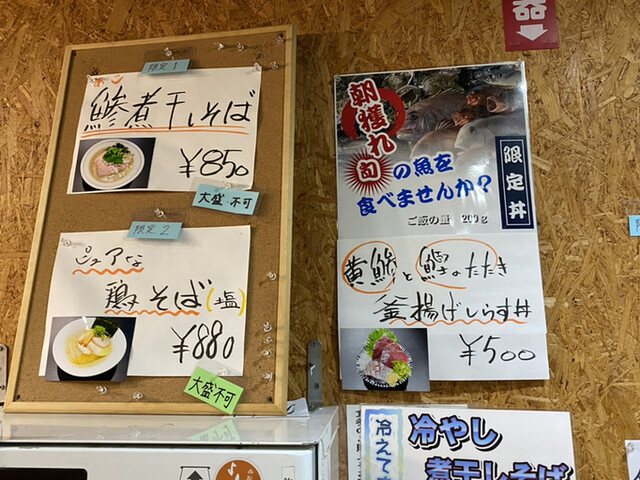 限定1
鯵煮干しそば
¥850
大盛 不可
限定2
ピュアな
鶏そば(塩)
¥880
大盛不可
器
朝獲れ
旬の魚を
食べませんか?
限定丼
ご飯の量 200g
黄鯵と鰹のたたき
釜揚げしらす丼
¥500
冷えて
冷やし
煮干しそば